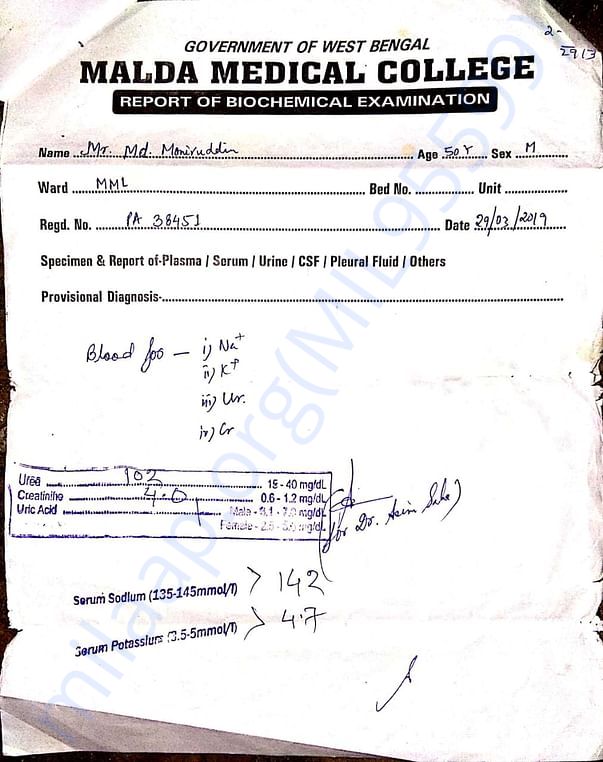 2-
29/3
GOVERNMENT OF WEST BENGAL
MALDA MEDICAL COLLEGE
REPORT OF BIOCHEMICAL EXAMINATION
Name Mr. Md. Moniruddin Age 50Y Sex M
Ward MML Bed No. Unit
Regd. No. PA 38451 Date 29/03/2019
Specimen & Report of-Plasma / Serum / Urine / CSF / Pleural Fluid / Others
Provisional Diagnosis-
Blood for — i) Na+
ii) K+
iii) Ur.
iv) Cr
Urea 102 15 - 40 mg/dL
Creatinine 4.0 0.6 - 1.2 mg/dL
Uric Acid Male - 3.1 - 7.0 mg/dL
Female - 2.5 - mg/dL
for Dr. Asim Saha)
Serum Sodium (135-145mmol/l) > 142
Serum Potassium (3.5-5mmol/l) > 4.7
milaap.org(MIL95599)